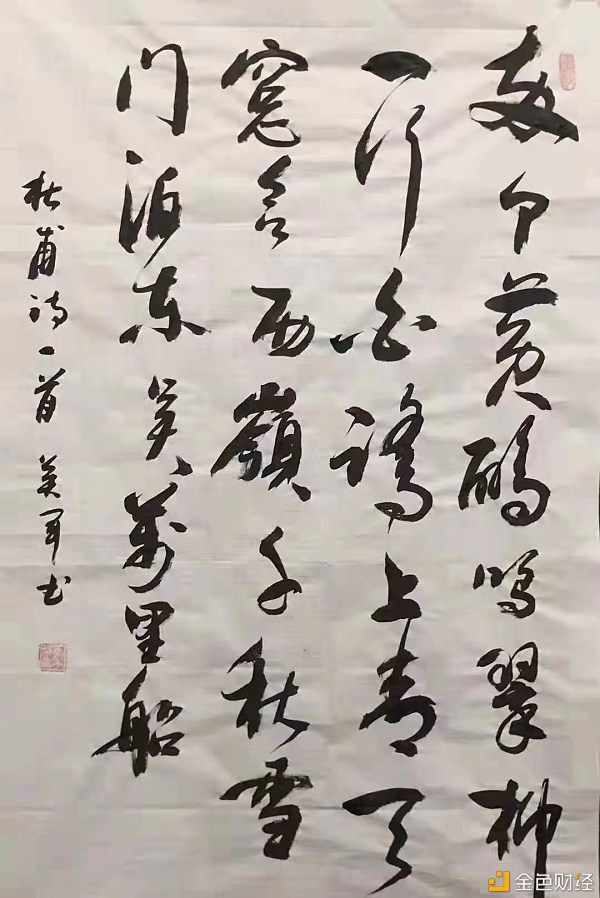 两个黄鹂鸣翠柳
一行白鹭上青天
窗含西嶺千秋雪
门泊东吴萬里船
杜甫诗一首 军书
金色财经